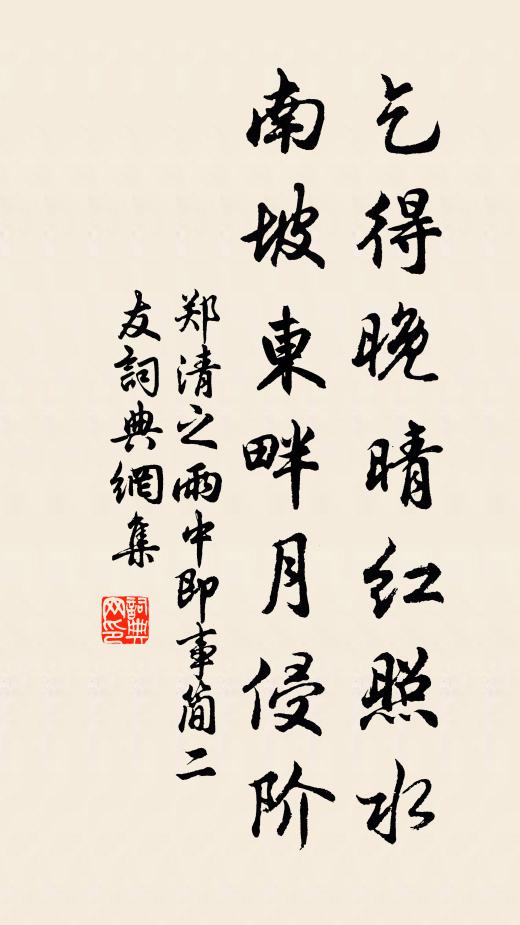 乞得晚晴红照水
南坡東畔月侵阶
郑清之雨中即事简二
友詞典網集
詞典网印